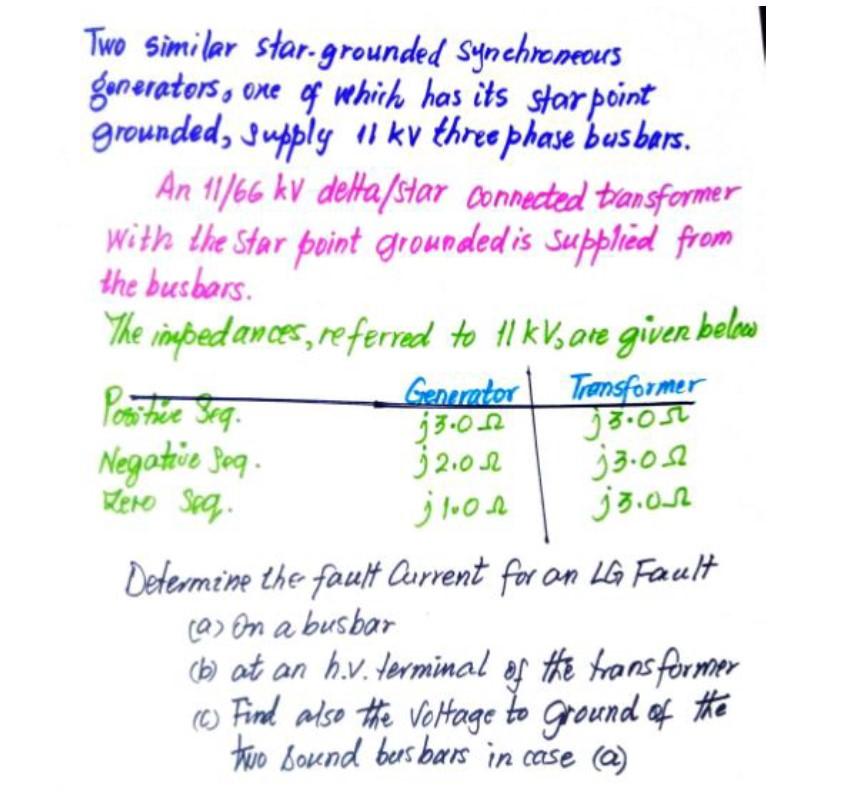 Two similar star-grounded Synchroneous
generators, one of which has its star point
grounded, supply 11 kV three phase busbars.
An 11/66 kV delta/star connected transformer
with the star point grounded is supplied from
the busbars.
The impedances, referred to 11 kV, are given below
Generator Transformer
Positive Seq. j3.0 Ω j3.0 Ω
Negative Seq. j2.0 Ω j3.0 Ω
Zero Seq. j1.0 Ω j3.0 Ω
Determine the fault Current for an LG Fault
(a) On a busbar
(b) at an h.v. terminal of the transformer
(c) Find also the Voltage to Ground of the
two sound busbars in case (a)